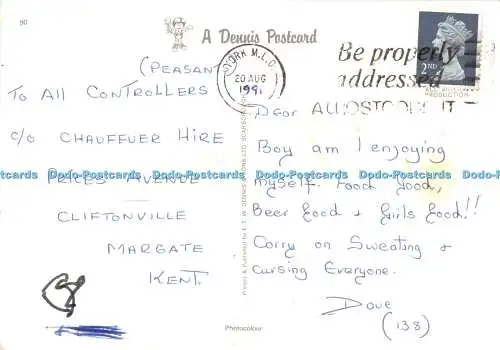 80
A Dennis Postcard
YORK M.L.O.
20 AUG
1991
Be properly
addressed
2ND
(PEASANT
TO ALL CONTROLLERS
C/O CHAUFFEUR HIRE
PRICES AVENUE
CLIFTONVILLE
MARGATE
KENT.
Dear ALL
Boy am I enjoying
myself. Food Good,
Beer Good & Girls Good!!
Carry on Sweating &
Cursing Everyone.
Dave
(138)
Printed & Published by E. T. W. DENNIS & SONS LTD. SCARBOROUGH
Photocolour
Dodo-Postcards Dodo-Postcards Dodo-Postcards Dodo-Postcards Dodo-Postcards